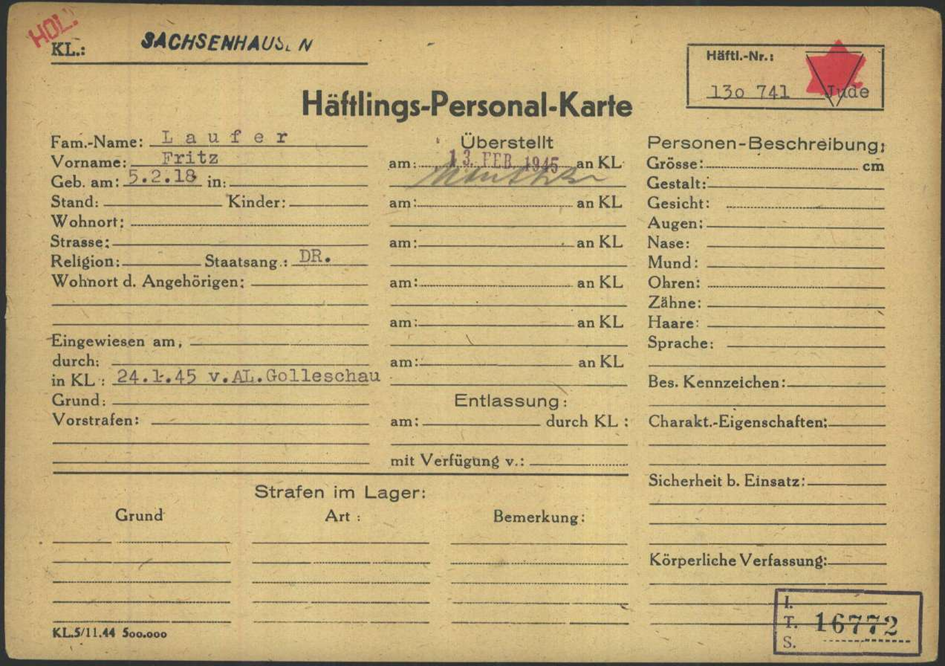 HOL.
KL.: SACHSENHAUSEN
Häftl.-Nr.:
130 741 Jude
Häftlings-Personal-Karte
Fam.-Name: Laufer
Vorname: Fritz
Geb. am: 5.2.18 in:
Stand: Kinder:
Wohnort:
Strasse:
Religion: Staatsang.: DR.
Wohnort d. Angehörigen:
Eingewiesen am,
durch:
in KL: 24.1.45 v.AL.Golleschau
Grund:
Vorstrafen:
Überstellt
am: 13. FEB. 1945 an KL
am: an KL
am: an KL
am: an KL
am: an KL
am: an KL
Entlassung:
am: durch KL:
mit Verfügung v.:
Personen-Beschreibung:
Grösse: cm
Gestalt:
Gesicht:
Augen:
Nase:
Mund:
Ohren:
Zähne:
Haare:
Sprache:
Bes. Kennzeichen:
Charakt.-Eigenschaften:
Sicherheit b. Einsatz:
Körperliche Verfassung:
Strafen im Lager:
Grund Art: Bemerkung:
KL.5/11.44 500.000
I.
T. 16772
S.